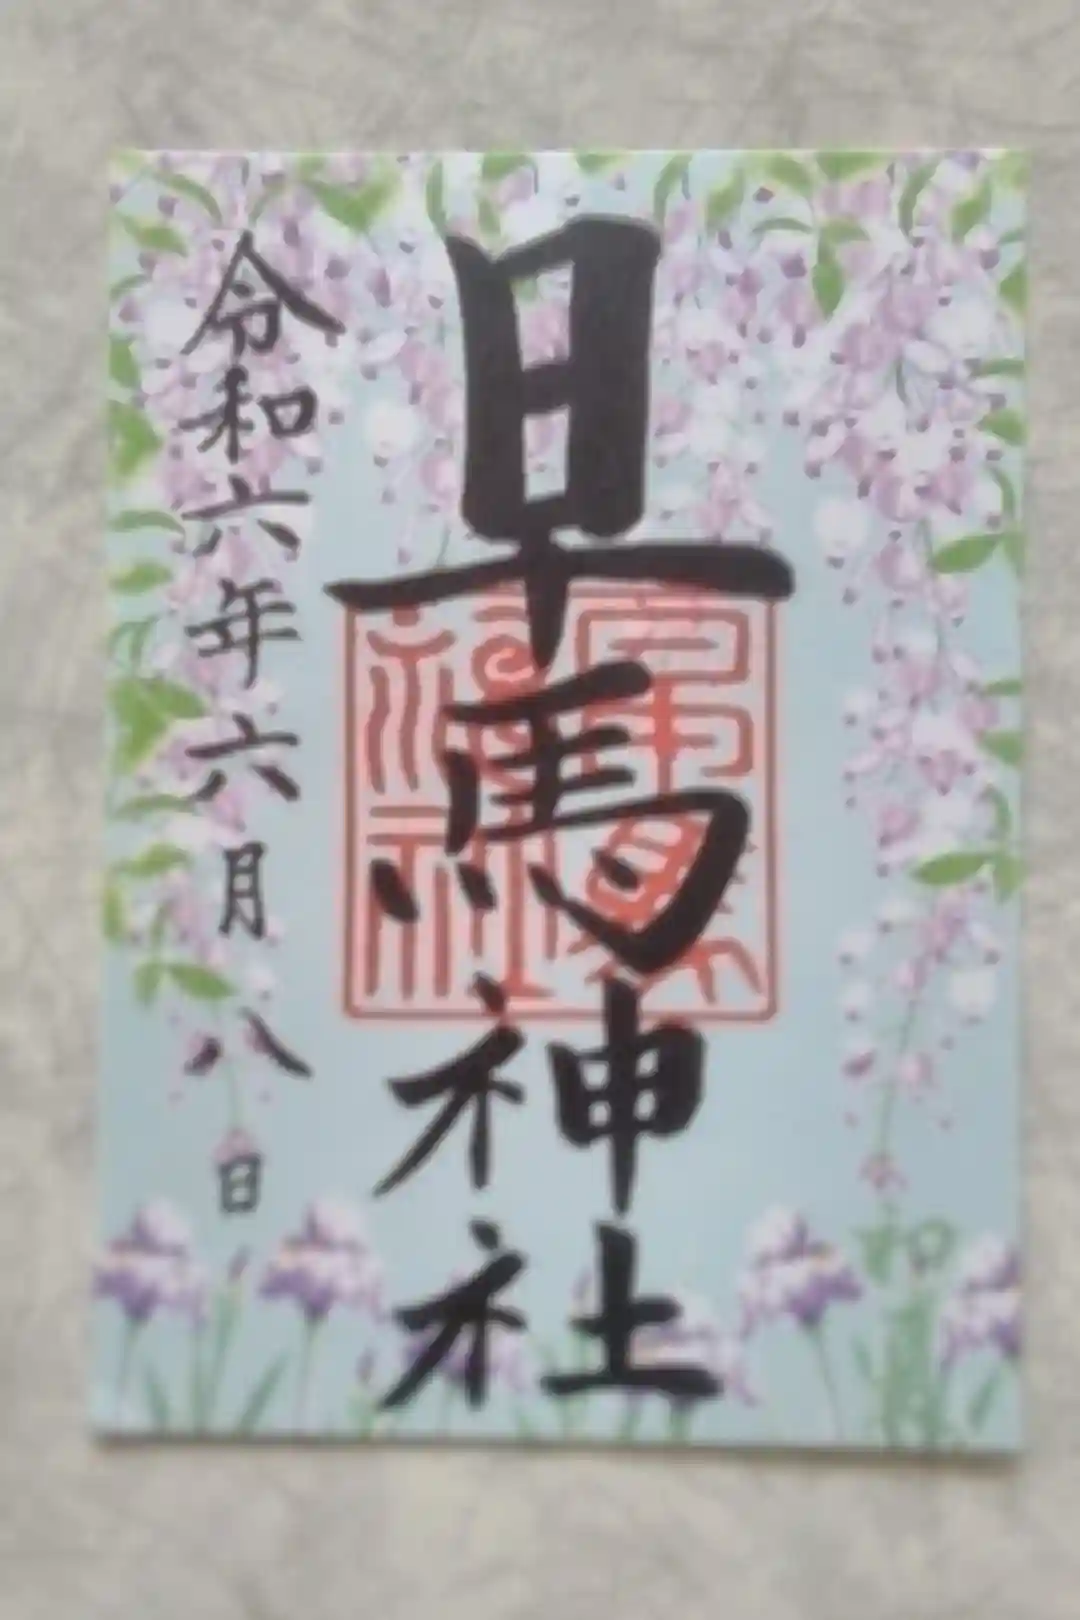 早馬神社
令和六年六月八日